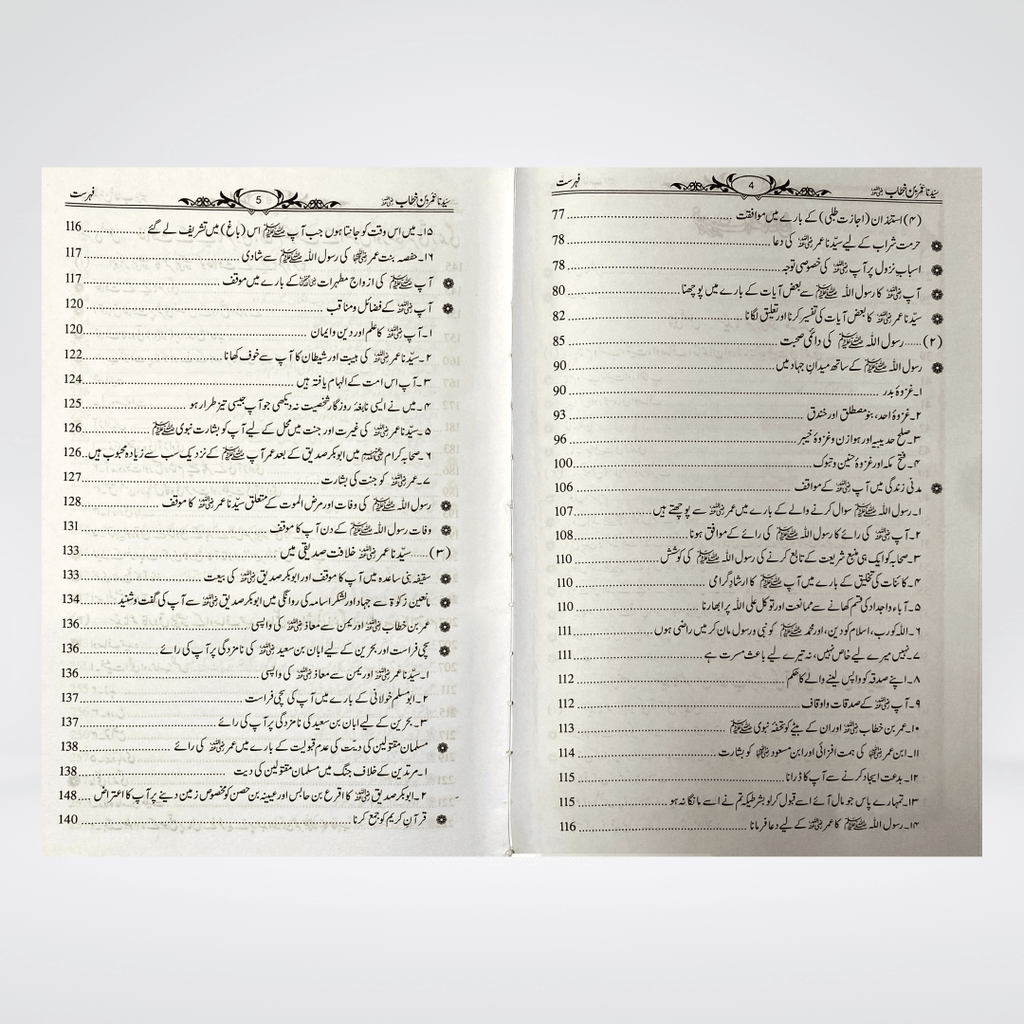 سیّدنا عمر بن خطاب رضی اللہ عنہ 4 فہرست
(۴) استئذان (اجازت طلبی) کے بارے میں موافقت 77
حرمت شراب کے لیے سیّدنا عمر رضی اللہ عنہ کی دعا 78
اسباب نزول پر آپ رضی اللہ عنہ کی خصوصی توجہ 78
آپ رضی اللہ عنہ کا رسول اللہ ﷺ سے بعض آیات کے بارے میں پوچھنا 80
سیّدنا عمر رضی اللہ عنہ کا بعض آیات کی تفسیر کرنا اور تعلیق لگانا 82
(۲) ..... رسول اللہ ﷺ کی دائمی صحبت 85
رسول اللہ ﷺ کے ساتھ میدانِ جہاد میں 90
۱۔ غزوۂ بدر 90
۲۔ غزوۂ احد، بنو مصطلق اور خندق 93
۳۔ صلح حدیبیہ اور ہوازن و غزوۂ خیبر 96
۴۔ فتح مکہ اور غزوۂ حنین و تبوک 100
مدنی زندگی میں آپ رضی اللہ عنہ کے مواقف 106
۱۔ رسول اللہ ﷺ سوال کرنے والے کے بارے میں عمر رضی اللہ عنہ سے پوچھتے ہیں 107
۲۔ آپ رضی اللہ عنہ کی رائے کا رسول اللہ ﷺ کی رائے کے موافق ہونا 108
۳۔ صحابہ کو ایک ہی منبع شریعت کے تابع کرنے کی رسول اللہ ﷺ کی کوشش 110
۴۔ کائنات کی تخلیق کے بارے میں آپ ﷺ کا ارشاد گرامی 110
۵۔ آباء و اجداد کی قسم کھانے سے ممانعت اور توکل علی اللہ پر ابھارنا 110
۶۔ اللہ کو رب، اسلام کو دین، اور محمد ﷺ کو نبی و رسول مان کر میں راضی ہوں 111
۷۔ نہیں میرے لیے خاص نہیں، نہ تیرے لیے باعث مسرت ہے 111
۸۔ اپنے صدقہ کو واپس لینے والے کا حکم 112
۹۔ آپ رضی اللہ عنہ کے صدقات و اوقاف 112
۱۰۔ عمر بن خطاب رضی اللہ عنہ اور ان کے بیٹے کو تحفۂ نبوی ﷺ 113
۱۱۔ ابن عمر رضی اللہ عنہما کی ہمت افزائی اور ابن مسعود رضی اللہ عنہ کو بشارت 114
۱۲۔ بدعت ایجاد کرنے سے آپ کا ڈرانا 115
۱۳۔ تمہارے پاس جو مال آئے اسے قبول کر لو بشرطیکہ تم نے اسے مانگا نہ ہو 115
۱۴۔ رسول اللہ ﷺ کا عمر رضی اللہ عنہ کے لیے دعا فرمانا 116
سیّدنا عمر بن خطاب رضی اللہ عنہ 5 فہرست
۱۵۔ میں اس وقت کو جانتا ہوں جب آپ ﷺ اس (باغ) میں تشریف لے گئے 116
۱۶۔ حفصہ بنت عمر رضی اللہ عنہا کی رسول اللہ ﷺ سے شادی 117
آپ ﷺ کی ازواج مطہرات کے بارے میں موقف 117
آپ رضی اللہ عنہ کے فضائل و مناقب 120
۱۔ آپ رضی اللہ عنہ کا علم اور دین و ایمان 120
۲۔ سیّدنا عمر رضی اللہ عنہ کی ہیبت اور شیطان کا آپ سے خوف کھانا 122
۳۔ آپ اس امت کے الہام یافتہ ہیں 124
۴۔ میں نے ایسی نابغۂ روزگار شخصیت نہ دیکھی جو آپ جیسی تیز طرار ہو 125
۵۔ سیّدنا عمر رضی اللہ عنہ کی غیرت اور جنت میں محل کے لیے آپ کو بشارت نبوی ﷺ 126
۶۔ صحابہ کرام رضی اللہ عنہم میں ابوبکر صدیق کے بعد عمر آپ ﷺ کے نزدیک سب سے زیادہ محبوب ہیں 126
۷۔ عمر رضی اللہ عنہ کو جنت کی بشارت 127
رسول اللہ ﷺ کی وفات اور مرض الموت کے متعلق سیّدنا عمر رضی اللہ عنہ کا موقف 128
وفات رسول اللہ ﷺ کے دن آپ کا موقف 131
(۳) ..... سیّدنا عمر رضی اللہ عنہ خلافت صدیقی میں 133
سقیفہ بنی ساعدہ میں آپ کا موقف اور ابوبکر صدیق رضی اللہ عنہ کی بیعت 133
مانعین زکوٰۃ سے جہاد اور لشکر اسامہ کی روانگی میں ابوبکر صدیق رضی اللہ عنہ سے آپ کی گفت و شنید 134
عمر بن خطاب رضی اللہ عنہ اور یمن سے معاذ رضی اللہ عنہ کی واپسی 136
سچی فراست اور بحرین کے لیے ابان بن سعید رضی اللہ عنہ کی نامزدگی پر آپ کی رائے 136
۱۔ سیّدنا عمر رضی اللہ عنہ اور یمن سے معاذ رضی اللہ عنہ کی واپسی 136
۲۔ ابو مسلم خولانی کے بارے میں آپ کی سچی فراست 137
۳۔ بحرین کے لیے ابان بن سعید کی نامزدگی پر آپ کی رائے 137
مسلمان مقتولین کی دیت کی عدم قبولیت کے بارے میں عمر رضی اللہ عنہ کی رائے 138
۱۔ مرتدین کے خلاف جنگ میں مسلمان مقتولین کی دیت 138
۲۔ ابوبکر صدیق رضی اللہ عنہ کا اقرع بن حابس اور عیینہ بن حصن کو مخصوص زمین دینے پر آپ کا اعتراض 148
قرآن کریم کو جمع کرنا 140